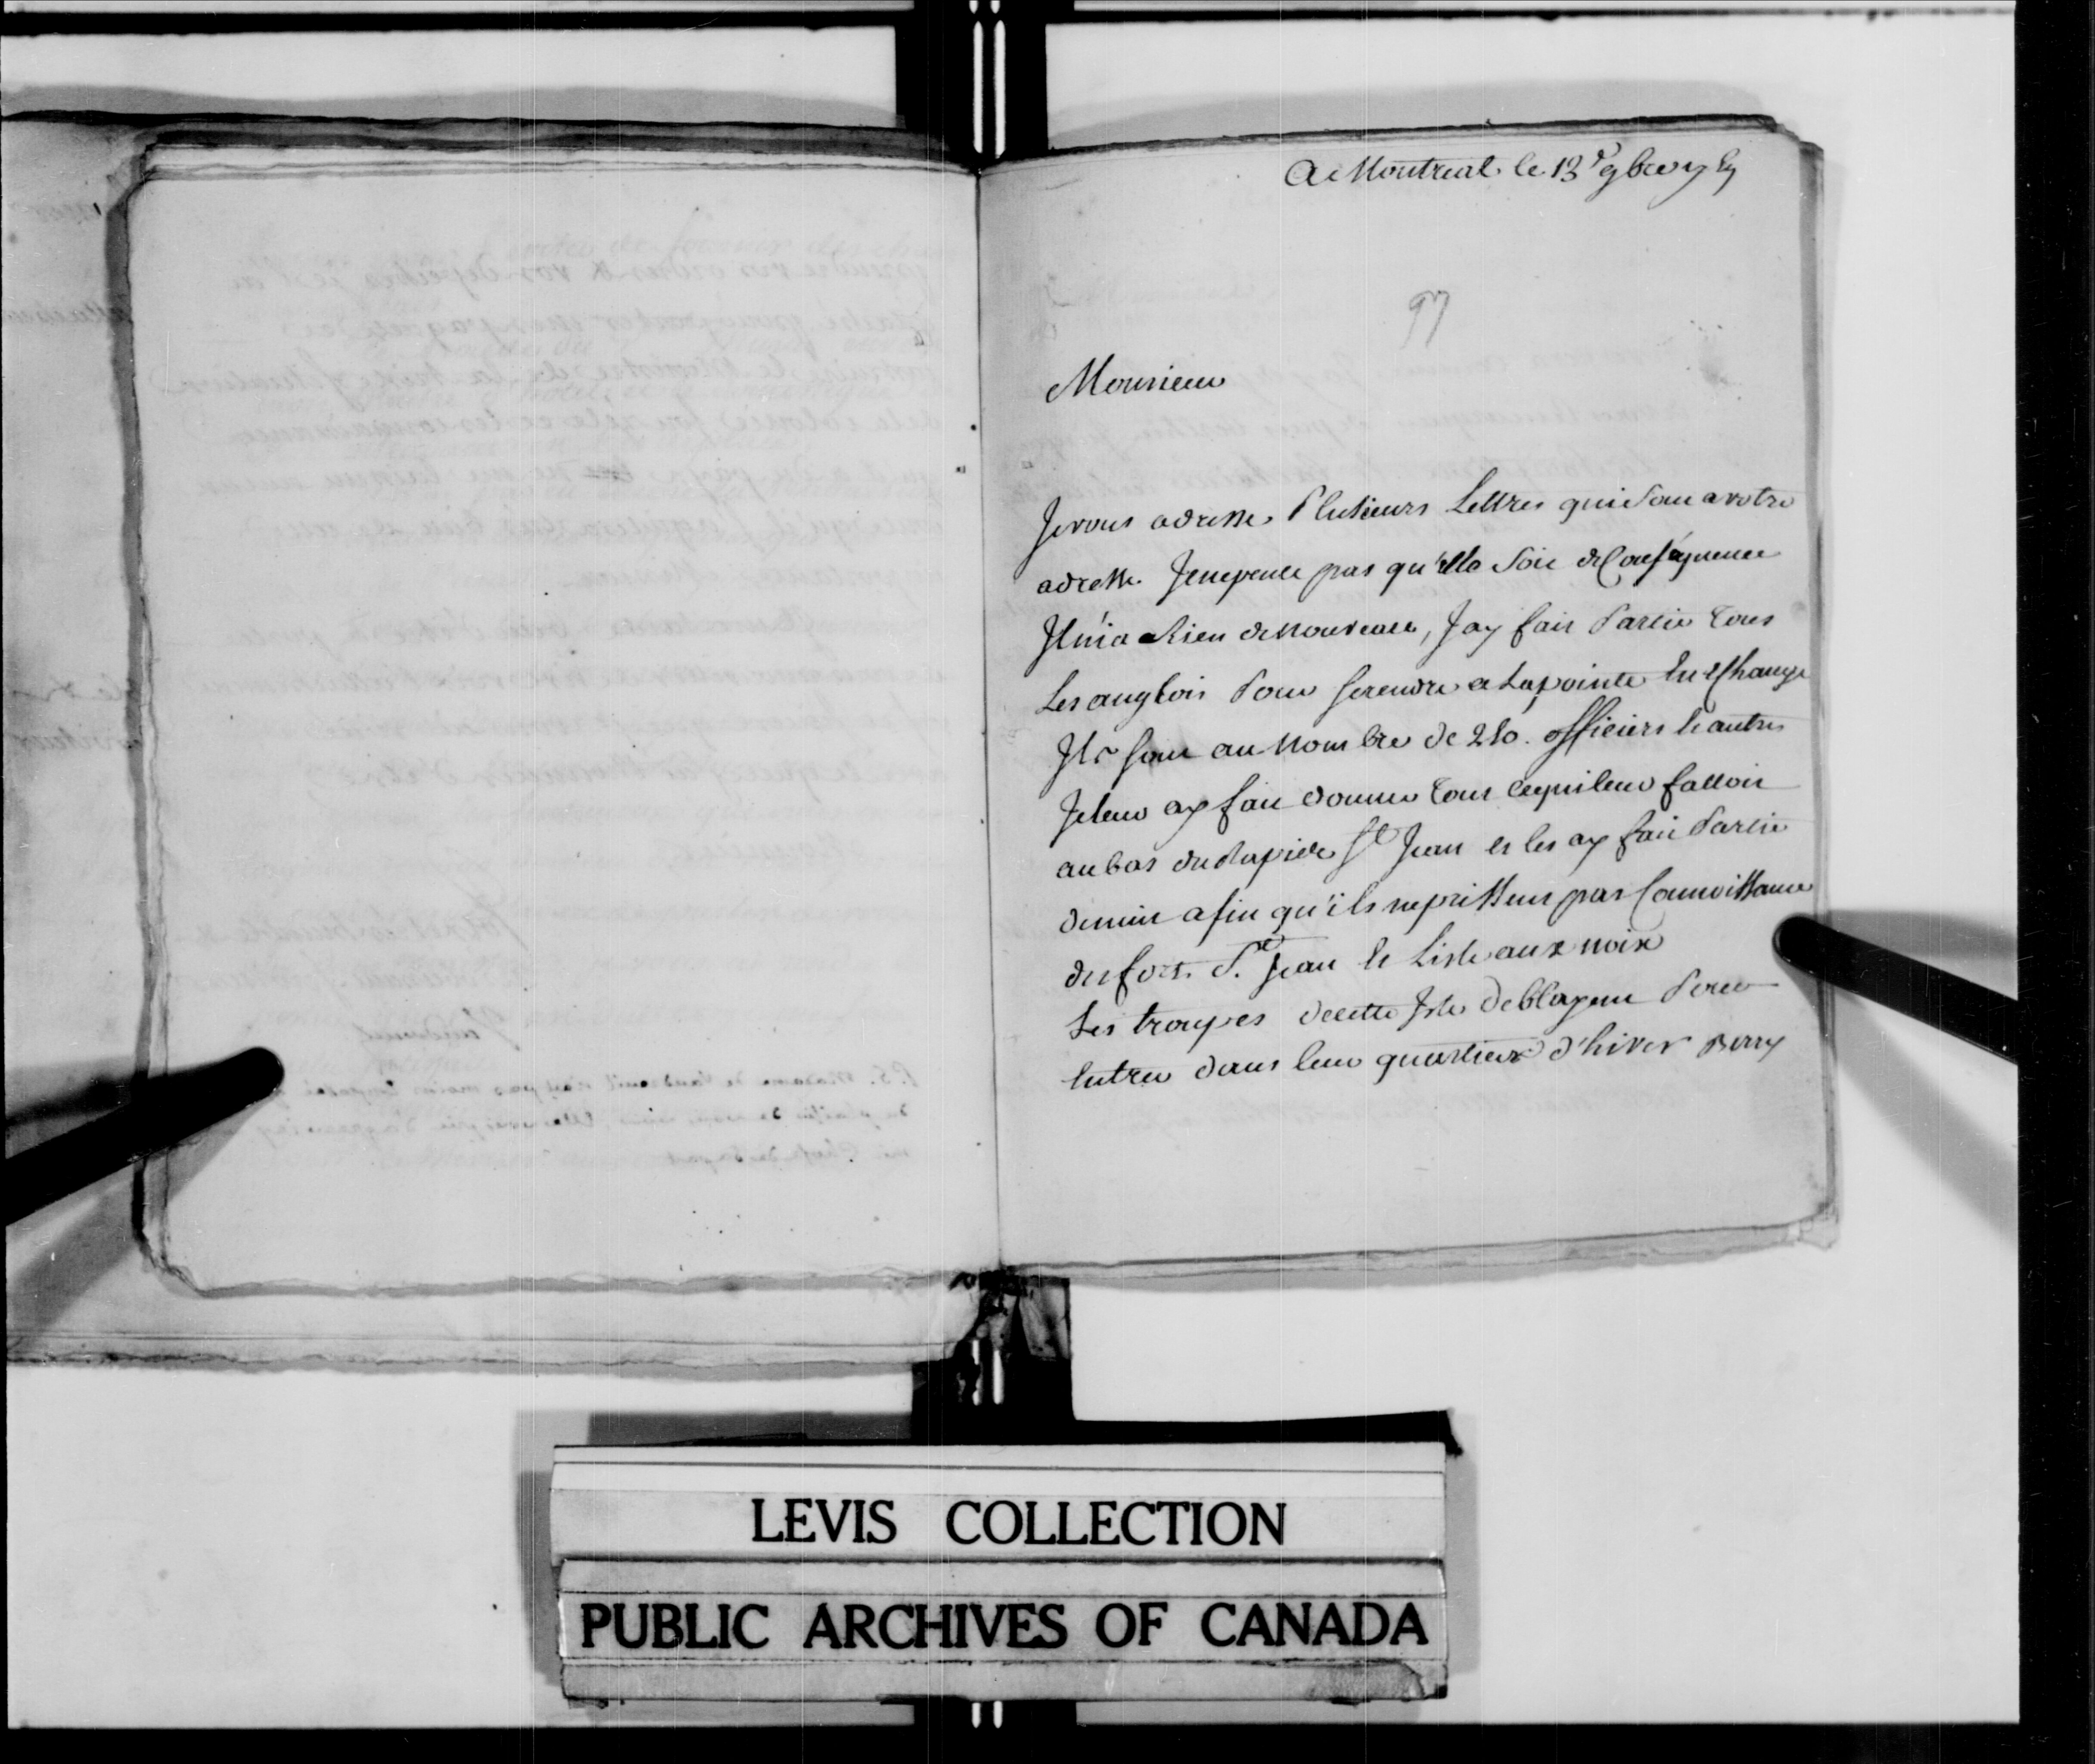 A Montreal le 13e 9bre 1759
97
Monsieur
Je vous adresse Plusieurs Lettres qui Sont a votre
adresse Je ne pense pas qu'elle Soit de Conséquence
Il n'i a Rien de Nouveau, Jay fait Partir tous
Les anglois Pour se rendre a Lapointe En Echange
Ils sont au Nombre de 250. officiers et autres
Je leur ay fait donner tout ce qui leur falloit
au bas du Rapide St Jean et les ay fait Partir
de nuit afin qu'ils ne prissent pas Connoissance
du fort St. Jean et Lisle aux noix
Les troupes de cette Isle Deblayent Pour
Entrer dans leur quartier d'hiver Berry
LEVIS COLLECTION
PUBLIC ARCHIVES OF CANADA